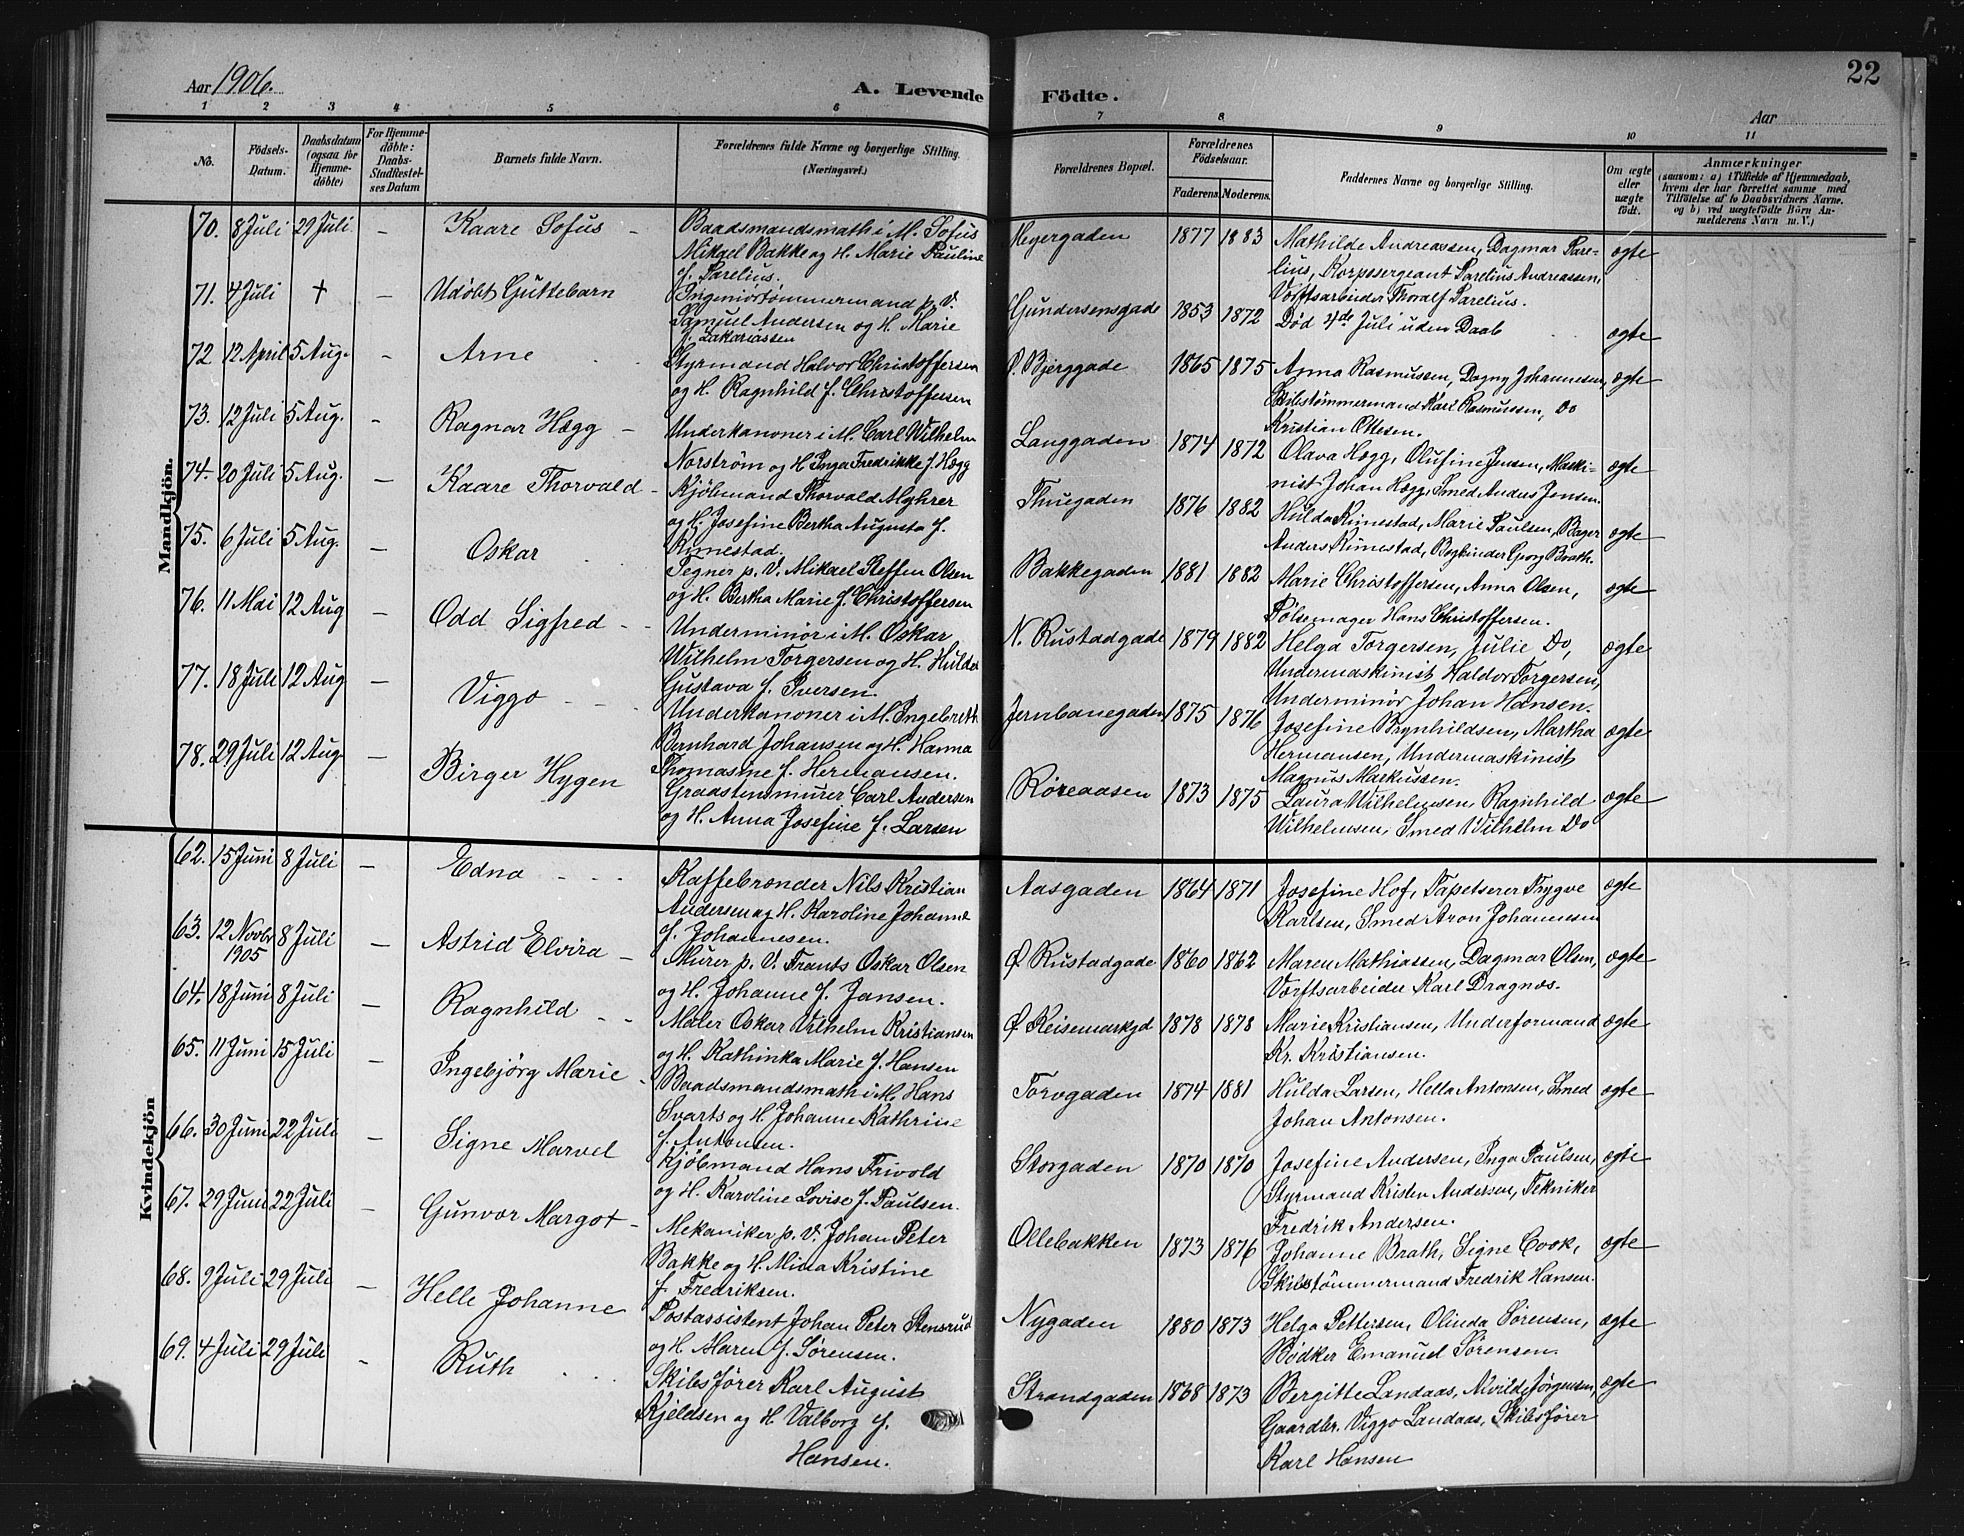 Aar 1906.
A. Levende Födte.
22
Aar
1 2 3 4 5 6 7 8 9 10 11
No.
Födsels-
Datum.
Daabsdatum
(ogsaa for
Hjemme-
döbte)
For Hjemme-
döbte:
Daabs-
Stadfæstel-
ses Datum
Barnets fulde Navn.
Forældrenes fulde Navne og borgerlige Stilling.
(Næringsvei.)
Forældrenes Bopæl.
Forældrenes
Födselsaar.
Faderens.
Moderens.
Faddernes Navne og borgerlige Stilling.
Om ægte
eller
uægte
födt.
Anmærkninger
(saasom: a) i Tilfælde af Hjemmedaab,
hvem der har forrettet samme med
Tilföielse af to Daabsvidners Navne.
og b) ved uægtefödte Börn An-
melderens Navn m. V.)
Mandkjön.
70. 8 Juli 29 Juli – Kaare Sofus –
Baadsmandsmath i M. Sofus
Mikael Bakke og H. Marie Pauline
f. Parelius.
Meyergaden 1877 1883
Mathilde Andreassen, Dagmar Pare-
lius, Korpssergeant Parelius Andreassen,
Værftsarbeider Thoralf Parelius.
ægte
71. 4 Juli † – Udöbt Guttebarn
Ingeniørtømmermand p. V.
Samuel Andersen og H. Marie
f. Zakariassen
Gundersensgade 1853 1872
Død 4de Juli uden Daab
ægte
72 12 April 5 Aug. – Arne
Styrmand Halvor Christoffersen
og H. Ragnhild f. Christoffersen
Ø. Bjerggade 1865 1875
Anna Rasmussen, Dagny Johannesen,
Skibstømmermand Karl Rasmussen, Do
Kristian Ottesen.
ægte
73. 12 Juli 5 Aug. – Ragnar Hægg –
Underkanoner i M. Carl Wilhelm
Norström og H. Inga Fredrikke f. Hægg
Langgaden 1874 1872
Olava Hægg, Olufine Jensen, Maski-
nist Johan Hægg, Smed Anders Jensen.
ægte
74. 20 Juli 5 Aug. – Kaare Thorvald –
Kjöbmand Thorvald Myhrer
og H. Josefine Bertha Augusta f.
Rimestad.
Thuegaden 1876 1882
Hulda Rimestad, Marie Paulsen, Bager
Anders Rimestad, Bogbinder Georg Brath.
ægte
75. 6 Juli 5 Aug. – Oskar
Tegner p. V. Mikael Steffen Olsen
og H. Bertha Marie f. Christoffersen
Bakkegaden 1881 1882
Marie Christoffersen, Anna Olsen,
Pølsemager Hans Christoffersen.
ægte
76. 11 Mai 12 Aug – Odd Sigfred – –
Underminør i M. Oskar
Wilhelm Torgersen og H. Hulda
Gustava f. Iversen.
N. Rustadgade 1879 1882
Helga Torgersen, Julie Do,
Undermaskinist Haldor Torgersen,
Underminør Johan Hansen.
ægte
77. 18 Juli 12 Aug – Viggo – – –
Underkanoner i M. Ingebreth
Bernhard Johansen og H. Hanna
Thomasine f. Hermansen.
Jernbanegaden 1875 1876
Josefine Brynhildsen, Martha
Hermansen, Undermaskinist
Magnus Markussen.
ægte
78. 29 Juli 12 Aug. – Birger Hygen
Graastensmurer Carl Andersen
og H. Anna Josefine f. Larsen
Røreaasen 1873 1875
Laura Wilhelmsen, Ragnhild
Wilhelmsen, Smed Wilhelm Do
ægte
Kvindekjön
62. 15 Juni 8 Juli – Edna – – –
Kaffebrænder Nils Kristian
Andersen og H. Karoline Johanne
f. Johannesen.
Aasgaden 1864 1871
Josefine Hof, Tapetserer Trygve
Karlsen, Smed Aron Johannesen
ægte
63. 12 Novbr 1905 8 Juli – Astrid Elvira –
Murer p. V. Frants Oskar Olsen
og H. Johanne f. Jansen.
Ø Rustadgade 1860 1862
Maren Mathiassen, Dagmar Olsen,
Værftsarbeider Karl Dragnæs.
ægte
64. 18 Juni 8 Juli – Ragnhild – –
Maler Oskar Vilhelm Kristiansen
og H. Kathinka Marie f. Hansen
Ø Keisemarkgd 1878 1878
Marie Kristiansen, Underformand
Kr. Kristiansen.
ægte
65. 11 Juni 15 Juli – Ingebjörg Marie –
Baadsmandsmath i M. Hans
Svarts og H. Johanne Kathrine
f. Antonsen.
Torvgaden 1874 1881
Hulda Larsen, Hella Antonsen, Smed
Johan Antonsen.
ægte
66. 30 Juni 22 Juli – Signe Marvel
Kjöbmand Hans Frivold
og H. Karoline Lovise f. Paulsen.
Storgaden 1870 1870
Josefine Andersen, Inga Paulsen,
Styrmand Kristen Andersen, Tekniker
Fredrik Andersen.
ægte
67. 29 Juni 22 Juli – Gunvor Margot –
Mekaniker p. V. Johan Peter
Bakke og H. Mina Kristine
f. Fredriksen.
Ollebakken 1873 1876
Johanne Brath, Signe Cook,
Skibstømmermand Fredrik Hansen.
ægte
68. 9 Juli 29 Juli – Helle Johanne
Postassistent Johan Peter Stensrud
og H. Maren f. Sørensen.
Nygaden 1880 1873
Helga Pettersen, Olinda Sørensen,
Bødker Emanuel Sørensen.
ægte
69. 4 Juli 29 Juli – Ruth
Skibsfører Karl August
Kjeldsen og H Valborg f.
Hansen.
Strandgaden 1868 1873
Bergitte Landaas, Alvilde Jørgensen,
Gaardbr. Viggo Landaas, Skibsfører
Karl Hansen
ægte